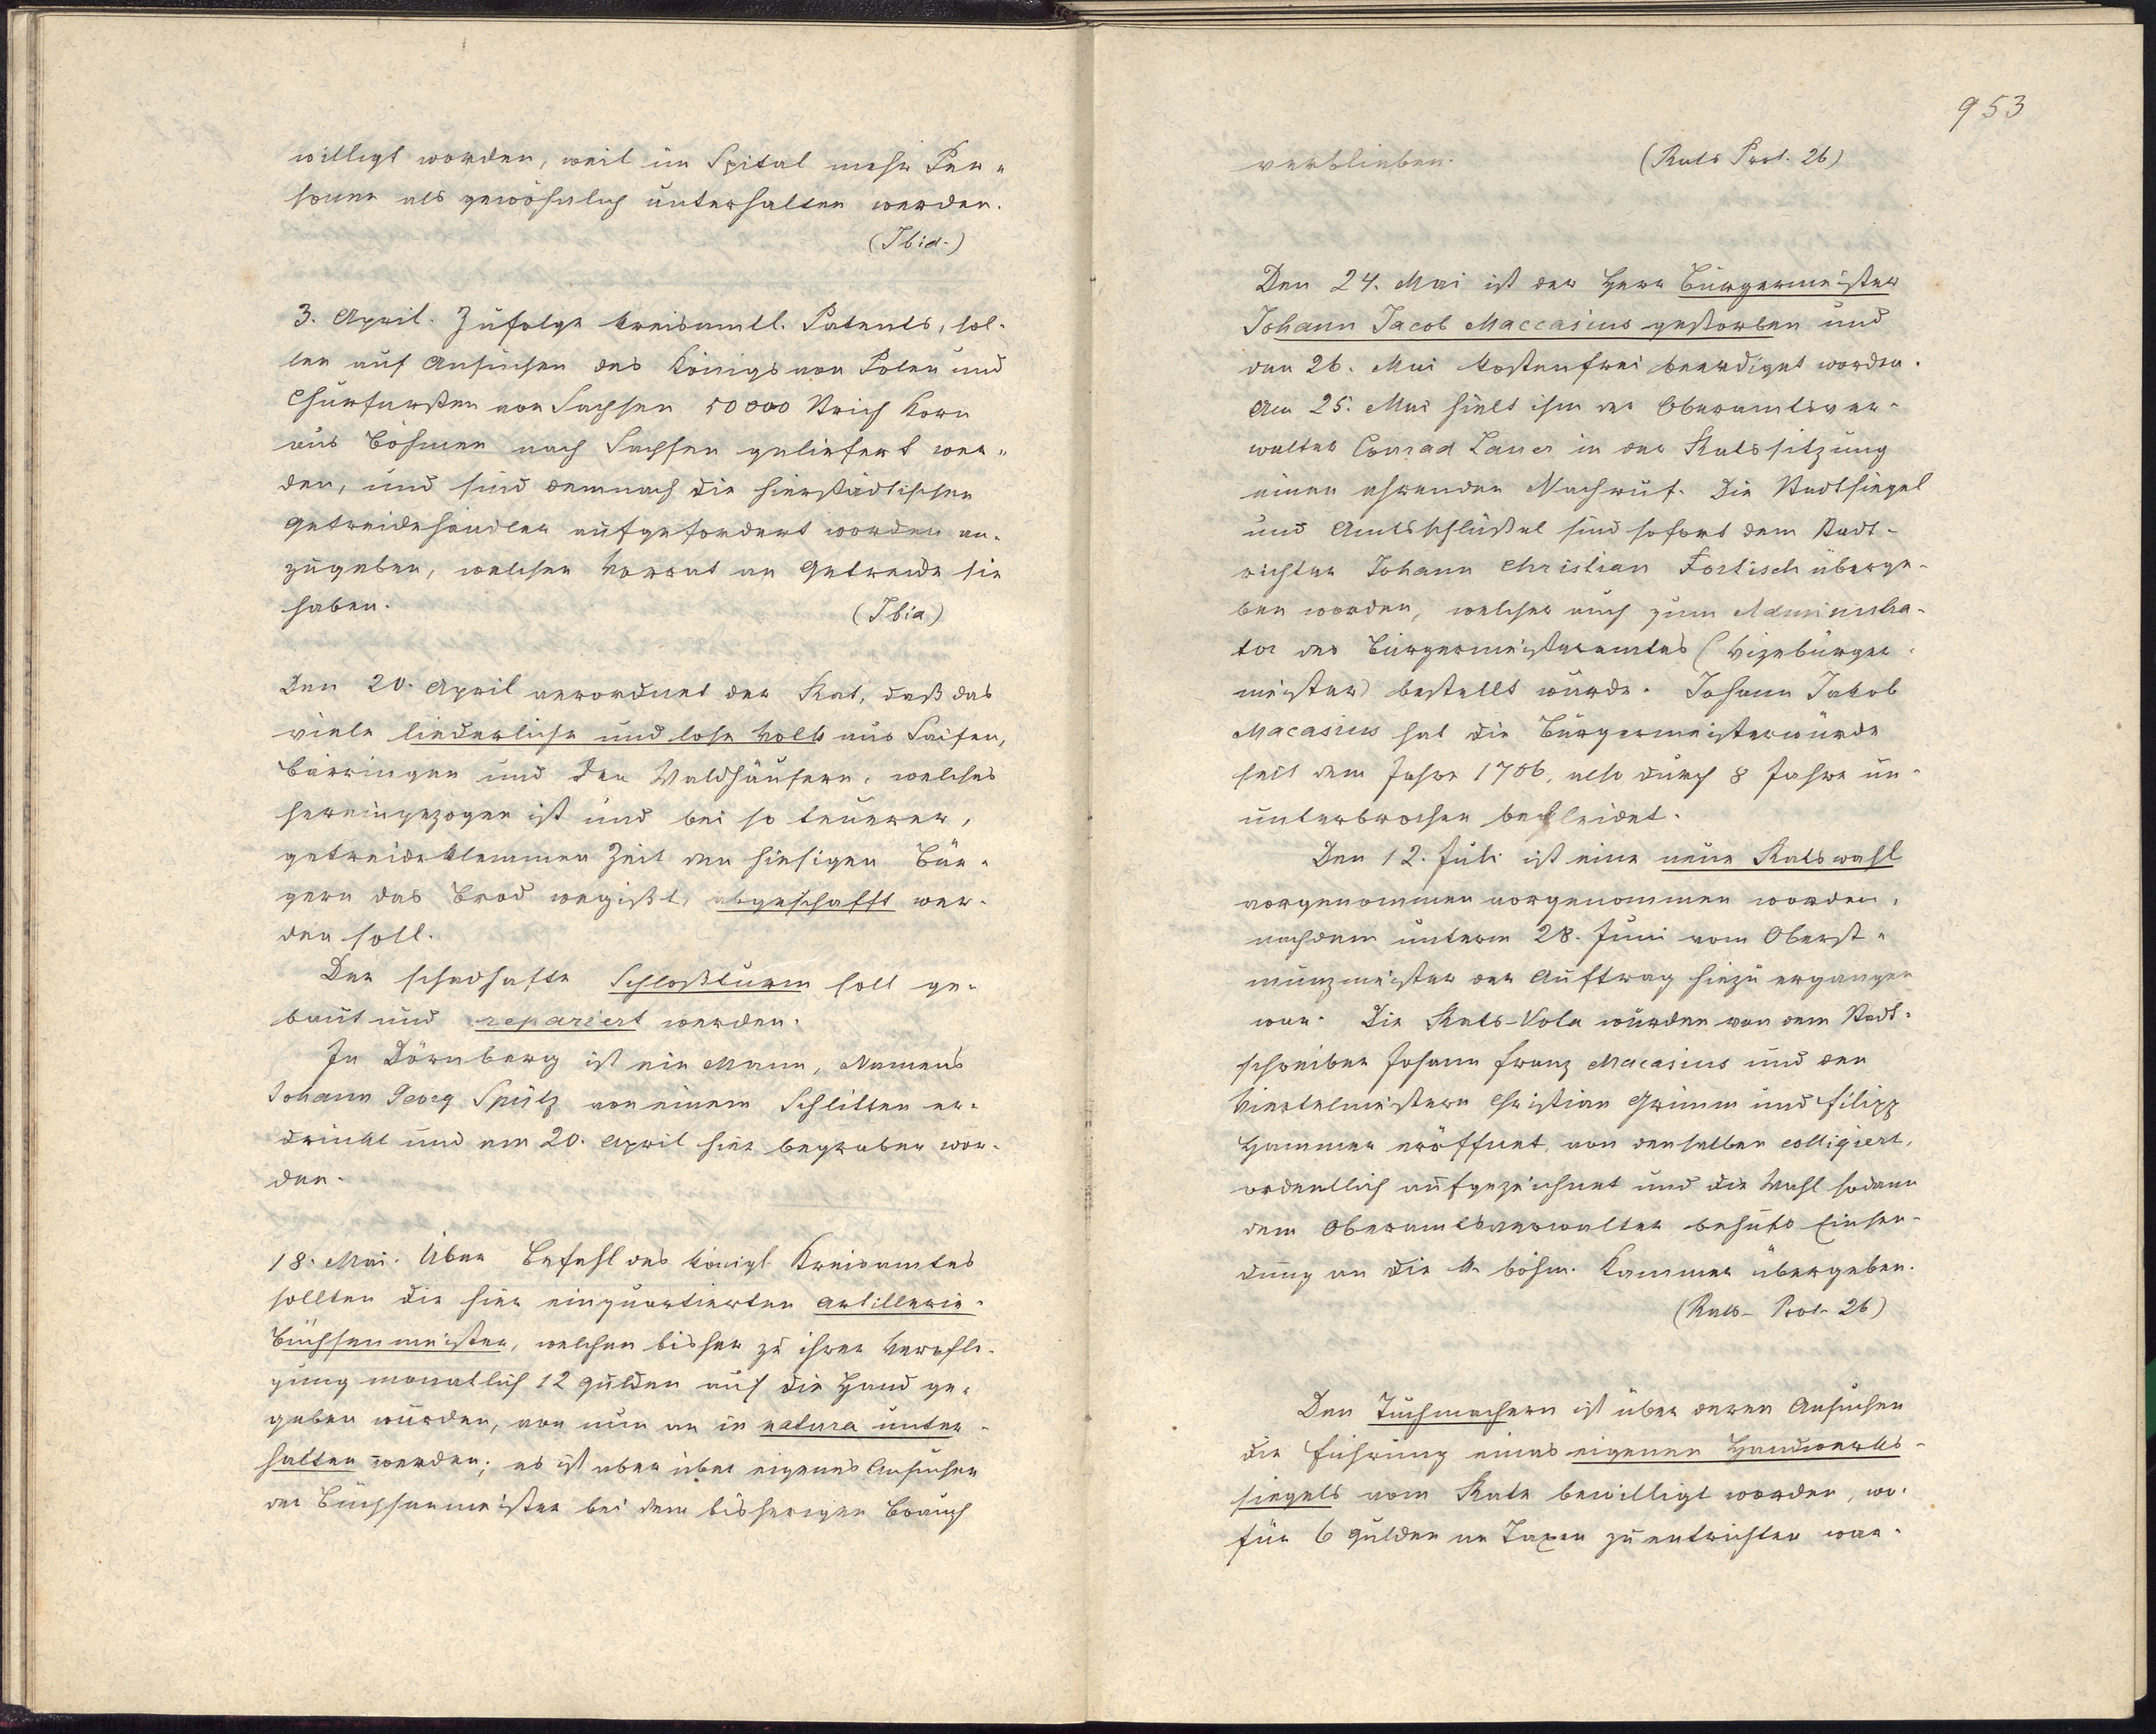 willigt worden, weil im Spital mehr Per-
sonen als gewöhnlich unterhalten werden.
(Ibid.)
3. April. Zufolge kreisamtl. Patents, sol-
len auf Ansuchen des Königs von Polen und
Churfürsten von Sachsen 50000 Strich Korn
aus Böhmen nach Sachsen geliefert wer-
den, und sind demnach die hierstädtischen
Getreidehändler aufgefordert worden an-
zugeben, welchen Vorrat an Getreide sie
haben.
(Ibid)
Den 20. April verordnet der Rat, daß das
viele liederliche und lose Volk aus Saifen,
Bärringen und den Waldhäusern, welches
hereingezogen ist und bei so teuerer,
getreideklemmen Zeit den hiesigen Bür-
gern das Brod wegißt, abgeschafft wer-
den soll.
Der schadhafte Schloßturm soll ge-
baut und repariert werden.
In Dörnberg ist ein Mann, Namens
Johann Georg Spütz von einem Schlitten er-
drückt und am 20. April hier begraben wor-
den.
18. Mai. Über Befehl des königl. Kreisamtes
sollten die hier einquartierten Artillerie-
Büchsenmeister, welchen bisher zu ihrer Verpfle-
gung monatlich 12 Gulden auf die Hand ge-
geben wurden, von nun an in natura unter-
halten werden; es ist aber über eigenes Ansuchen
der Büchsenmeister bei dem bisherigen Brauch
953
verblieben.
(Rats Prot. 26)
Den 24. Mai ist der Herr Bürgermeister
Johann Jacob Maccasius gestorben und
den 26. Mai kostenfrei beerdiget worden.
Am 25. Mai hielt ihm der Oberamtsver-
walter Conrad Lauer in der Ratssitzung
einen ehrenden Nachruf. Die Stadtsiegel
und Amtsschlüßel sind sofort dem Stadt-
richter Johann Christian Fortisch überge-
ben worden, welcher auch zum Administra-
tor des Bürgermeisteramtes (Vizebürger-
meister) bestellt wurde. Johann Jakob
Macasius hat die Bürgermeisterwürde
seit dem Jahre 1706, also durch 8 Jahre un-
unterbrochen bekleidet.
Den 12. Juli ist eine neue Ratswahl
vorgenommen vorgenommen worden,
nachdem unterm 28. Juni vom Oberst-
münzmeister der Auftrag hiezu ergangen
war. Die Rats-Vota wurden von dem Stadt-
schreiber Johann Franz Macasius und den
Viertelmeistern Christian Grimm und Filipp
Hammer eröffnet, von denselben colligiert,
ordentlich aufgezeichnet und die Wahl sodann
dem Oberamtsverwalter behufs Einsen-
dung an die k. böhm. Kammer übergeben.
(Rats-Prot. 26)
Den Tuchmachern ist über deren Ansuchen
die Führung eines eigenen Handwerks-
siegels vom Rate bewilligt worden, wo-
für 6 Gulden an Taxen zu entrichten war.